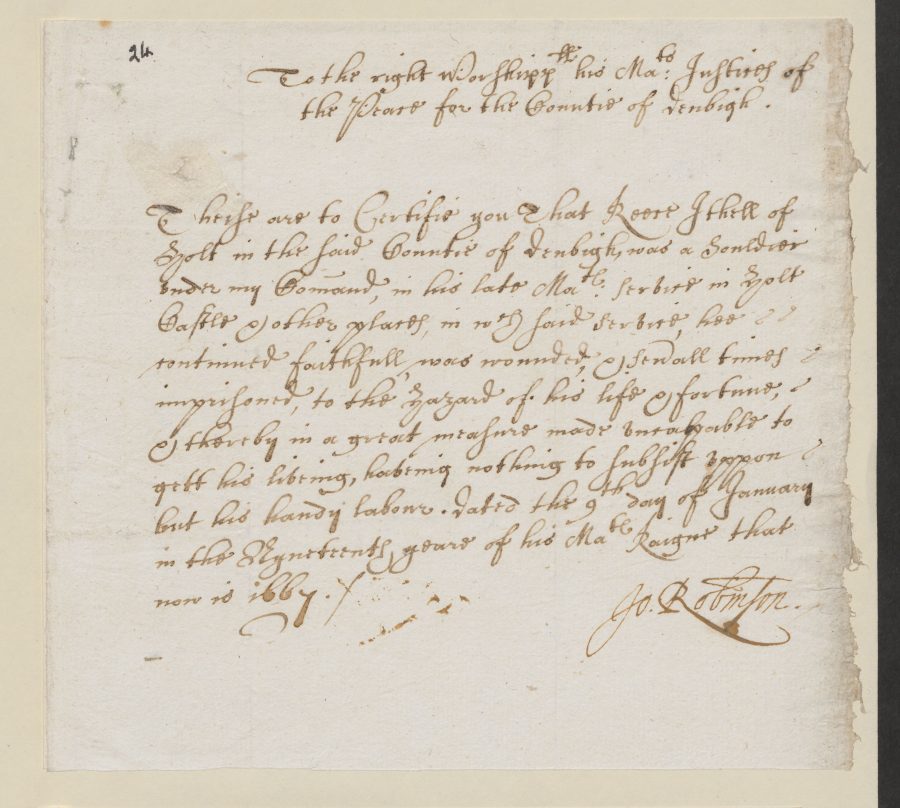 24
To the right Worshipp:ll his Ma:ts Justices of
the Peace for the Countie of denbigh.
Theise are to Certifie you That Reece Ithell of
Holt in the said Countie of denbigh, was a Souldier
under my Comand, in his late Ma:ts service in Holt
Castle & other places, in wch said service, hee
continued faithfull, was wounded, & sevall times
imprisoned, to the Hazard of his life & fortune,
& thereby in a great measure made uncapable to
gett his liveing, haveing nothing to subsist uppon
but his handy labour. dated the 9th day of January
in the Nyneteenth yeare of his Mats Raigne that
now is 1667.
Jo. Robinson.